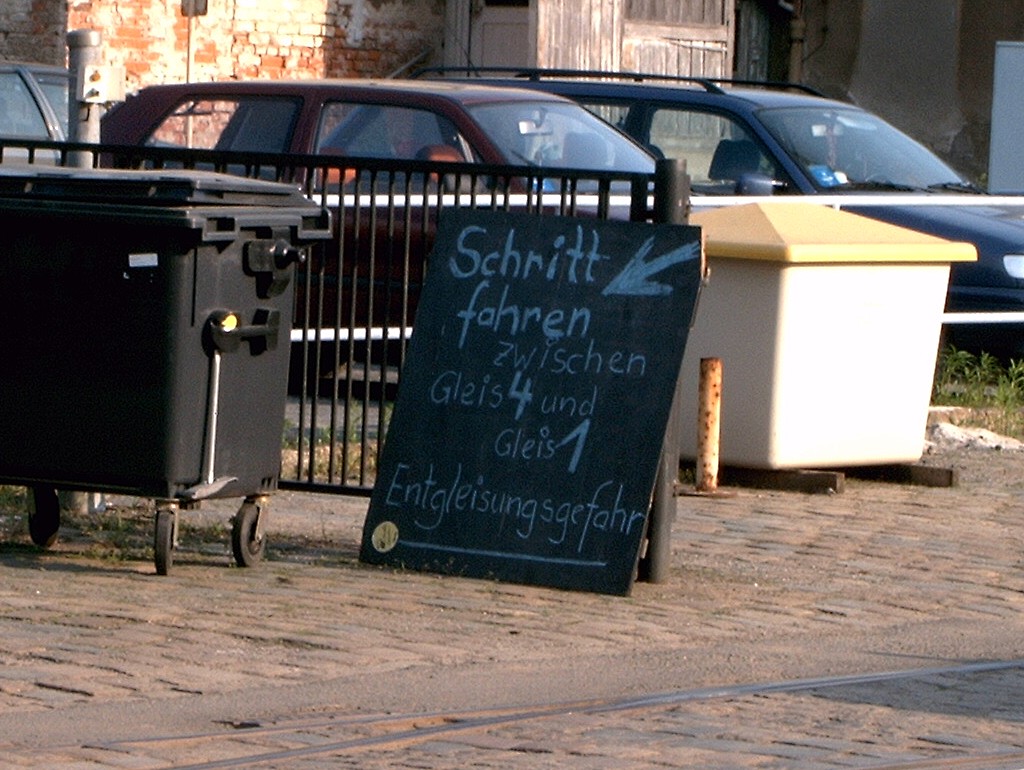 Schritt
fahren
zwischen
Gleis 4 und
Gleis 1
Entgleisungsgefahr